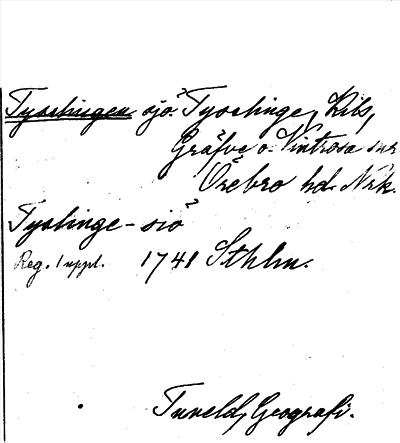 Tysslingen sjö. Tysslinge, Kils,
Gräfve o. Vintrosa snr
Örebro hd. Nrk.
Tyslinge-siö
Reg. 1 uppl. 1741 Sthlm.
Tuneld, Geografi.